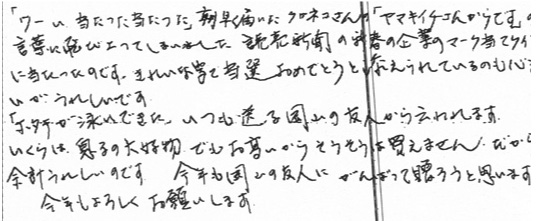 「ワーい、当たった当たった」朝早く届いたクロネコさんの「ヤマキイチさんからです」の
言葉に飛び上ってしまいました 読売新聞の新春の企業のマーク当てクイ
に当たったのです。きれいな字で当選おめでとうと添えられているのも心
いがうれしいです
「ホタテが泳いできた」いつも送る岡山の友人から云われます
いくらは息子の大好物 でもお高いからそうそうは買えません だから
余計うれしいのです 今年も岡山の友人にがんばって贈ろうと思います
今年もよろしくお願いします